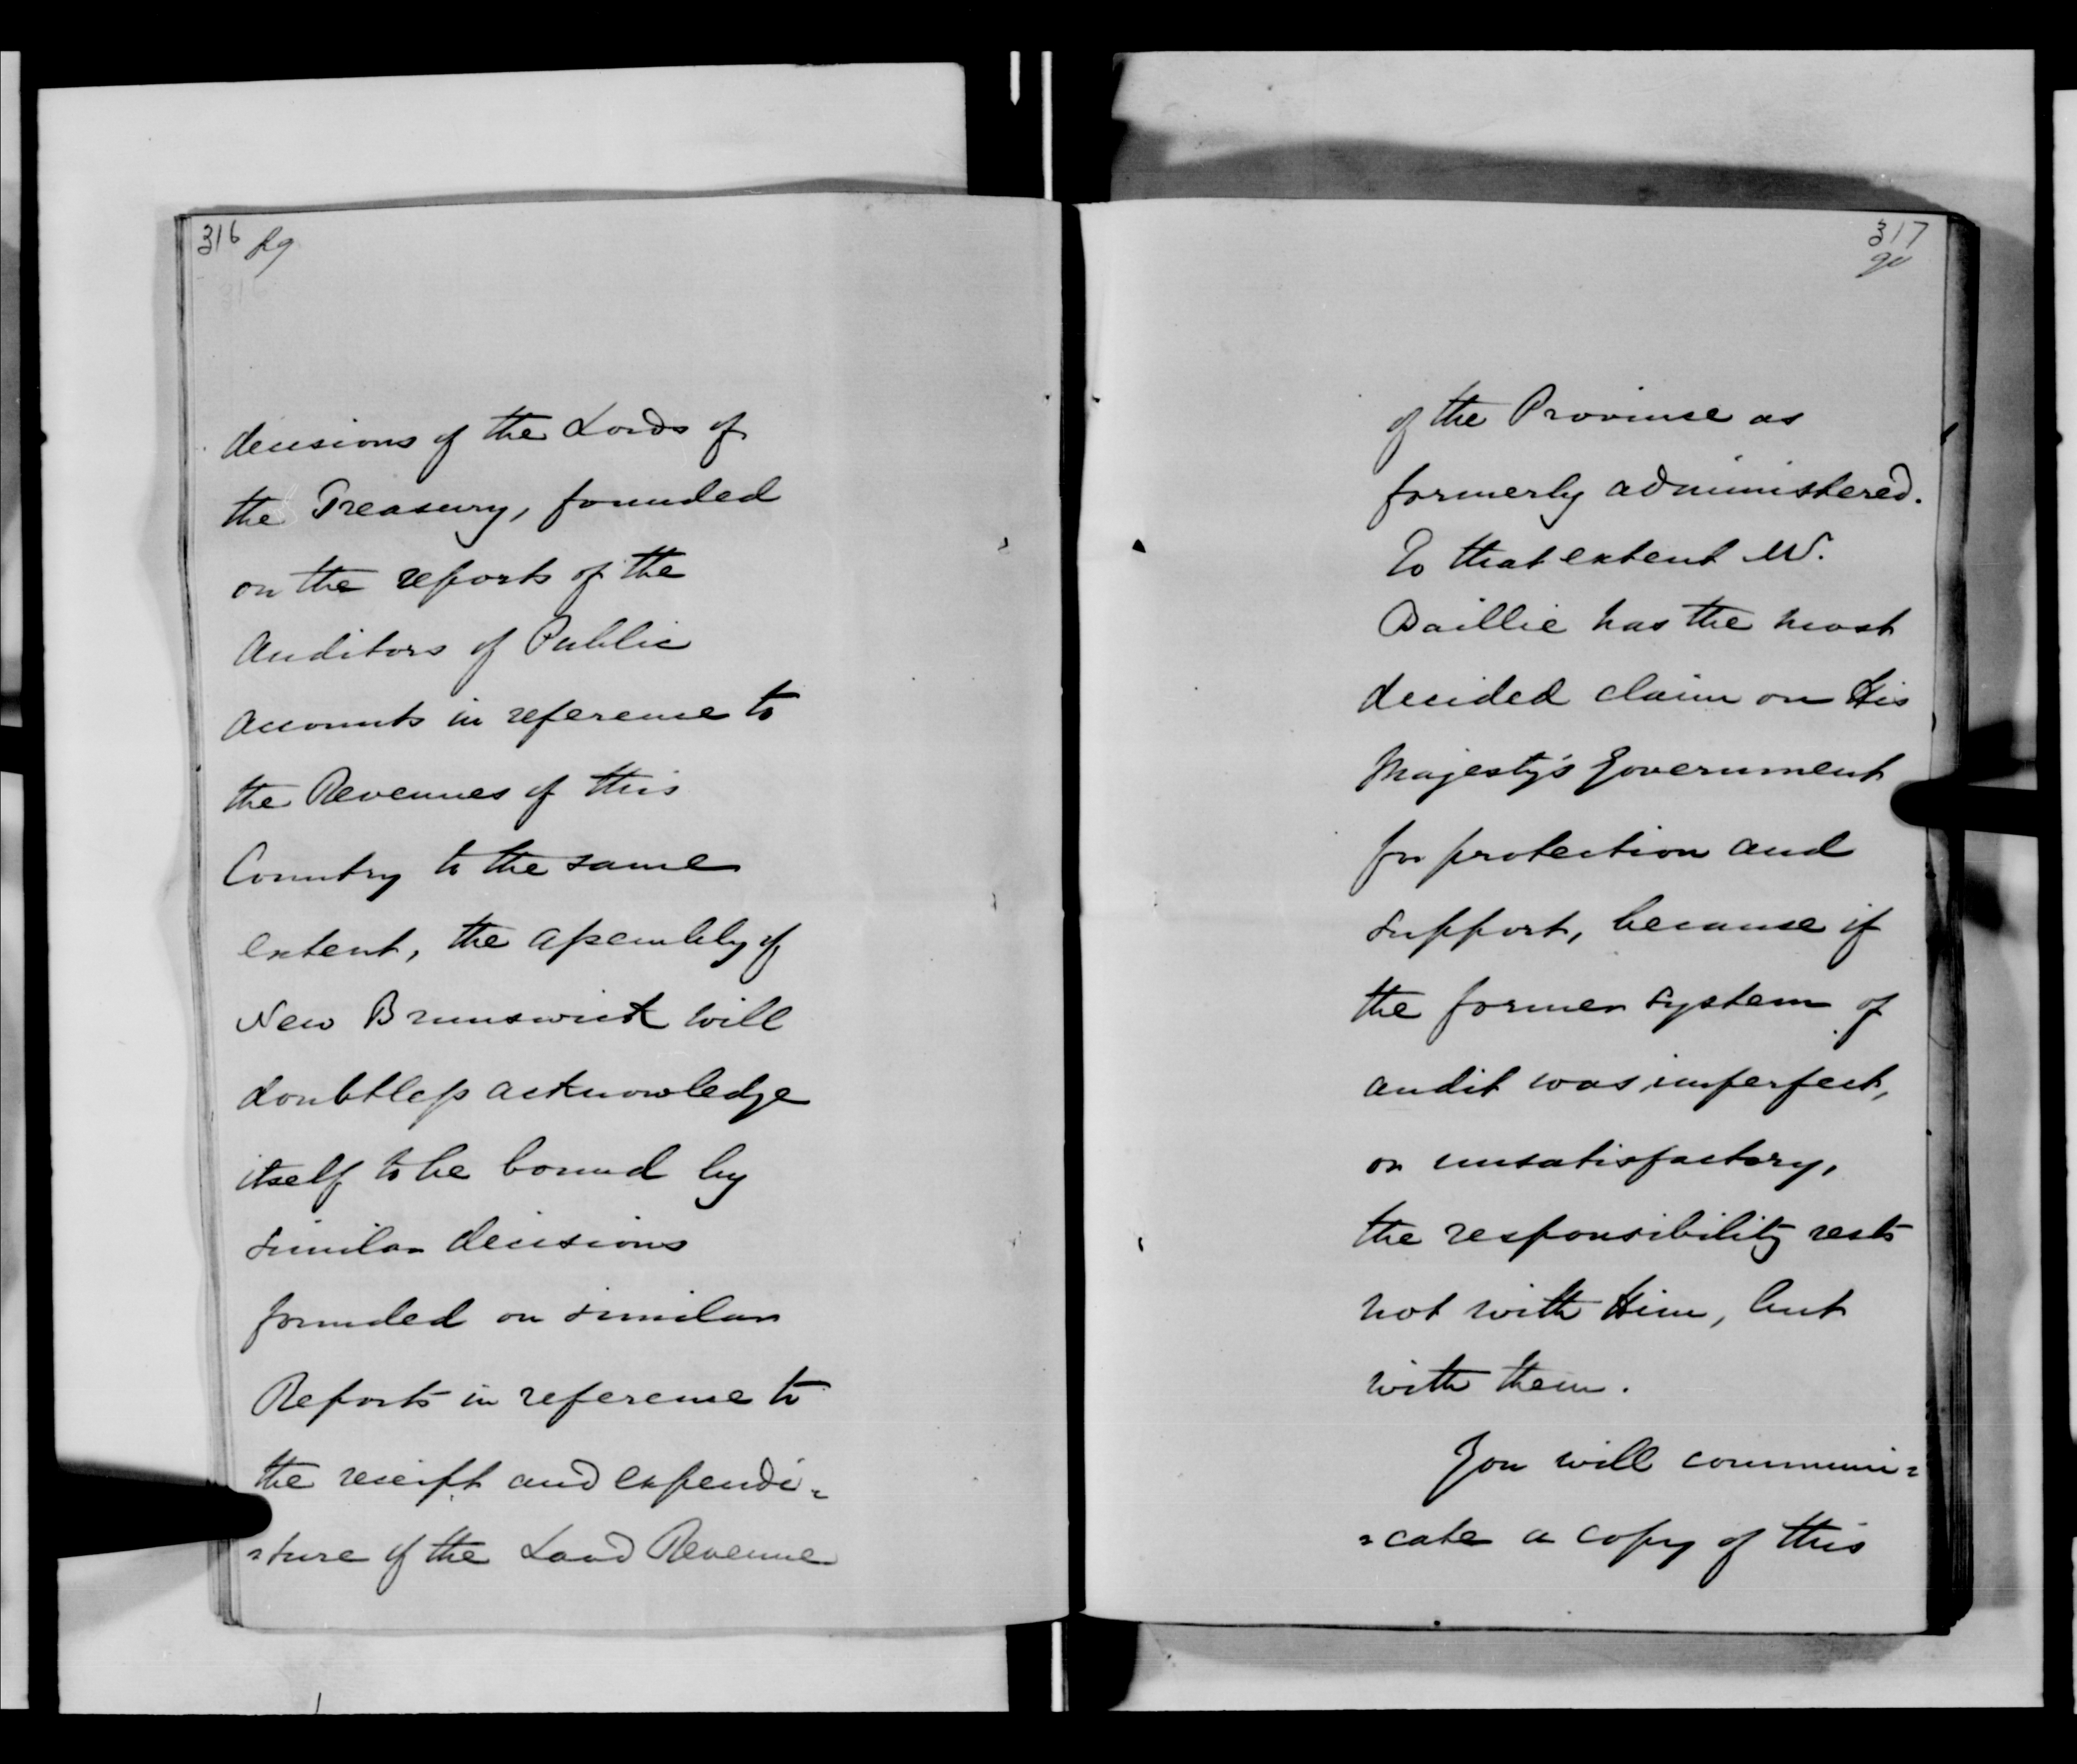 316 89
316
decisions of the Lords of
the Treasury, founded
on the reports of the
Auditors of Public
Accounts in reference to
the Revenues of this
Country to the same
extent, the Assembly of
New Brunswick will
doubtless acknowledge
itself to be bound by
similar decisions
founded on similar
Reports in reference to
the receipt and expendi=
=ture of the Land Revenue
317
90
of the Province as
formerly administered.
To that extent Mr.
Baillie has the most
decided claim on His
Majesty's Government
for protection and
support, because if
the former system of
audit was imperfect,
or unsatisfactory,
the responsibility rests
not with Him, but
with them.
You will communi=
=cate a copy of this